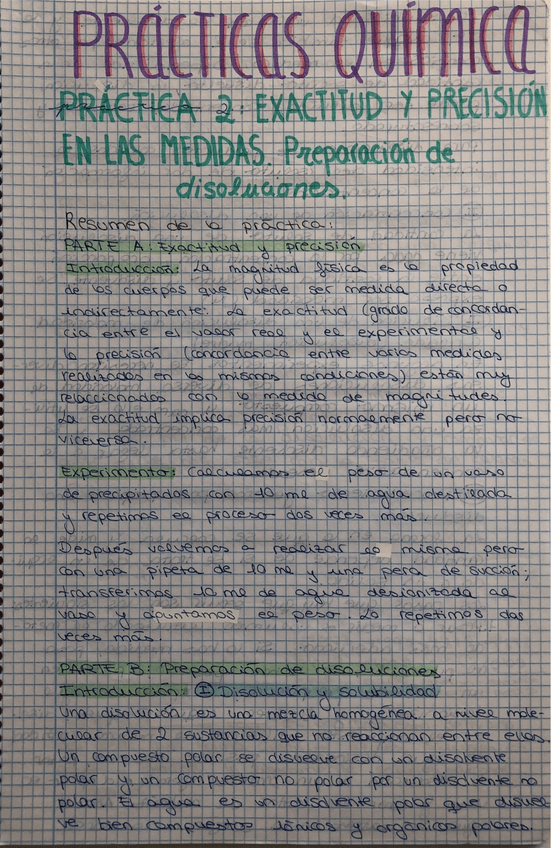 PRÁCTICAS QUÍMICA
PRÁCTICA 2: EXACTITUD Y PRECISIÓN
EN LAS MEDIDAS. Preparación de
disoluciones.
Resumen de la práctica:
PARTE A: Exactitud y precisión
Introducción: La magnitud física es la propiedad
de los cuerpos que puede ser medida directa o
indirectamente. La exactitud (grado de concordan-
cia entre el valor real y el experimental y
la precisión (concordancia entre varias medidas
realizadas en las mismas condiciones) están muy
relacionados con la medida de magnitudes.
La exactitud implica precisión normalmente pero no
viceversa.
Experimento: Calculamos el peso de un vaso
de precipitados con 10 ml de agua destilada
y repetimos el proceso dos veces más.
Después volvemos a realizar lo mismo pero
con una pipeta de 10 ml y una pera de succión;
transferimos 10 ml de agua desionizada al
vaso y apuntamos el peso. Lo repetimos dos
veces más.
PARTE B: Preparación de disoluciones
Introducción: I Disolución y solubilidad
Una disolución es una mezcla homogénea a nivel mole-
cular de 2 sustancias que no reaccionan entre ellas.
Un compuesto polar se disuelve con un disolvente
polar y un compuesto no polar por un disolvente no
polar. El agua es un disolvente polar que disuel-
ve bien compuestos iónicos y orgánicos polares.